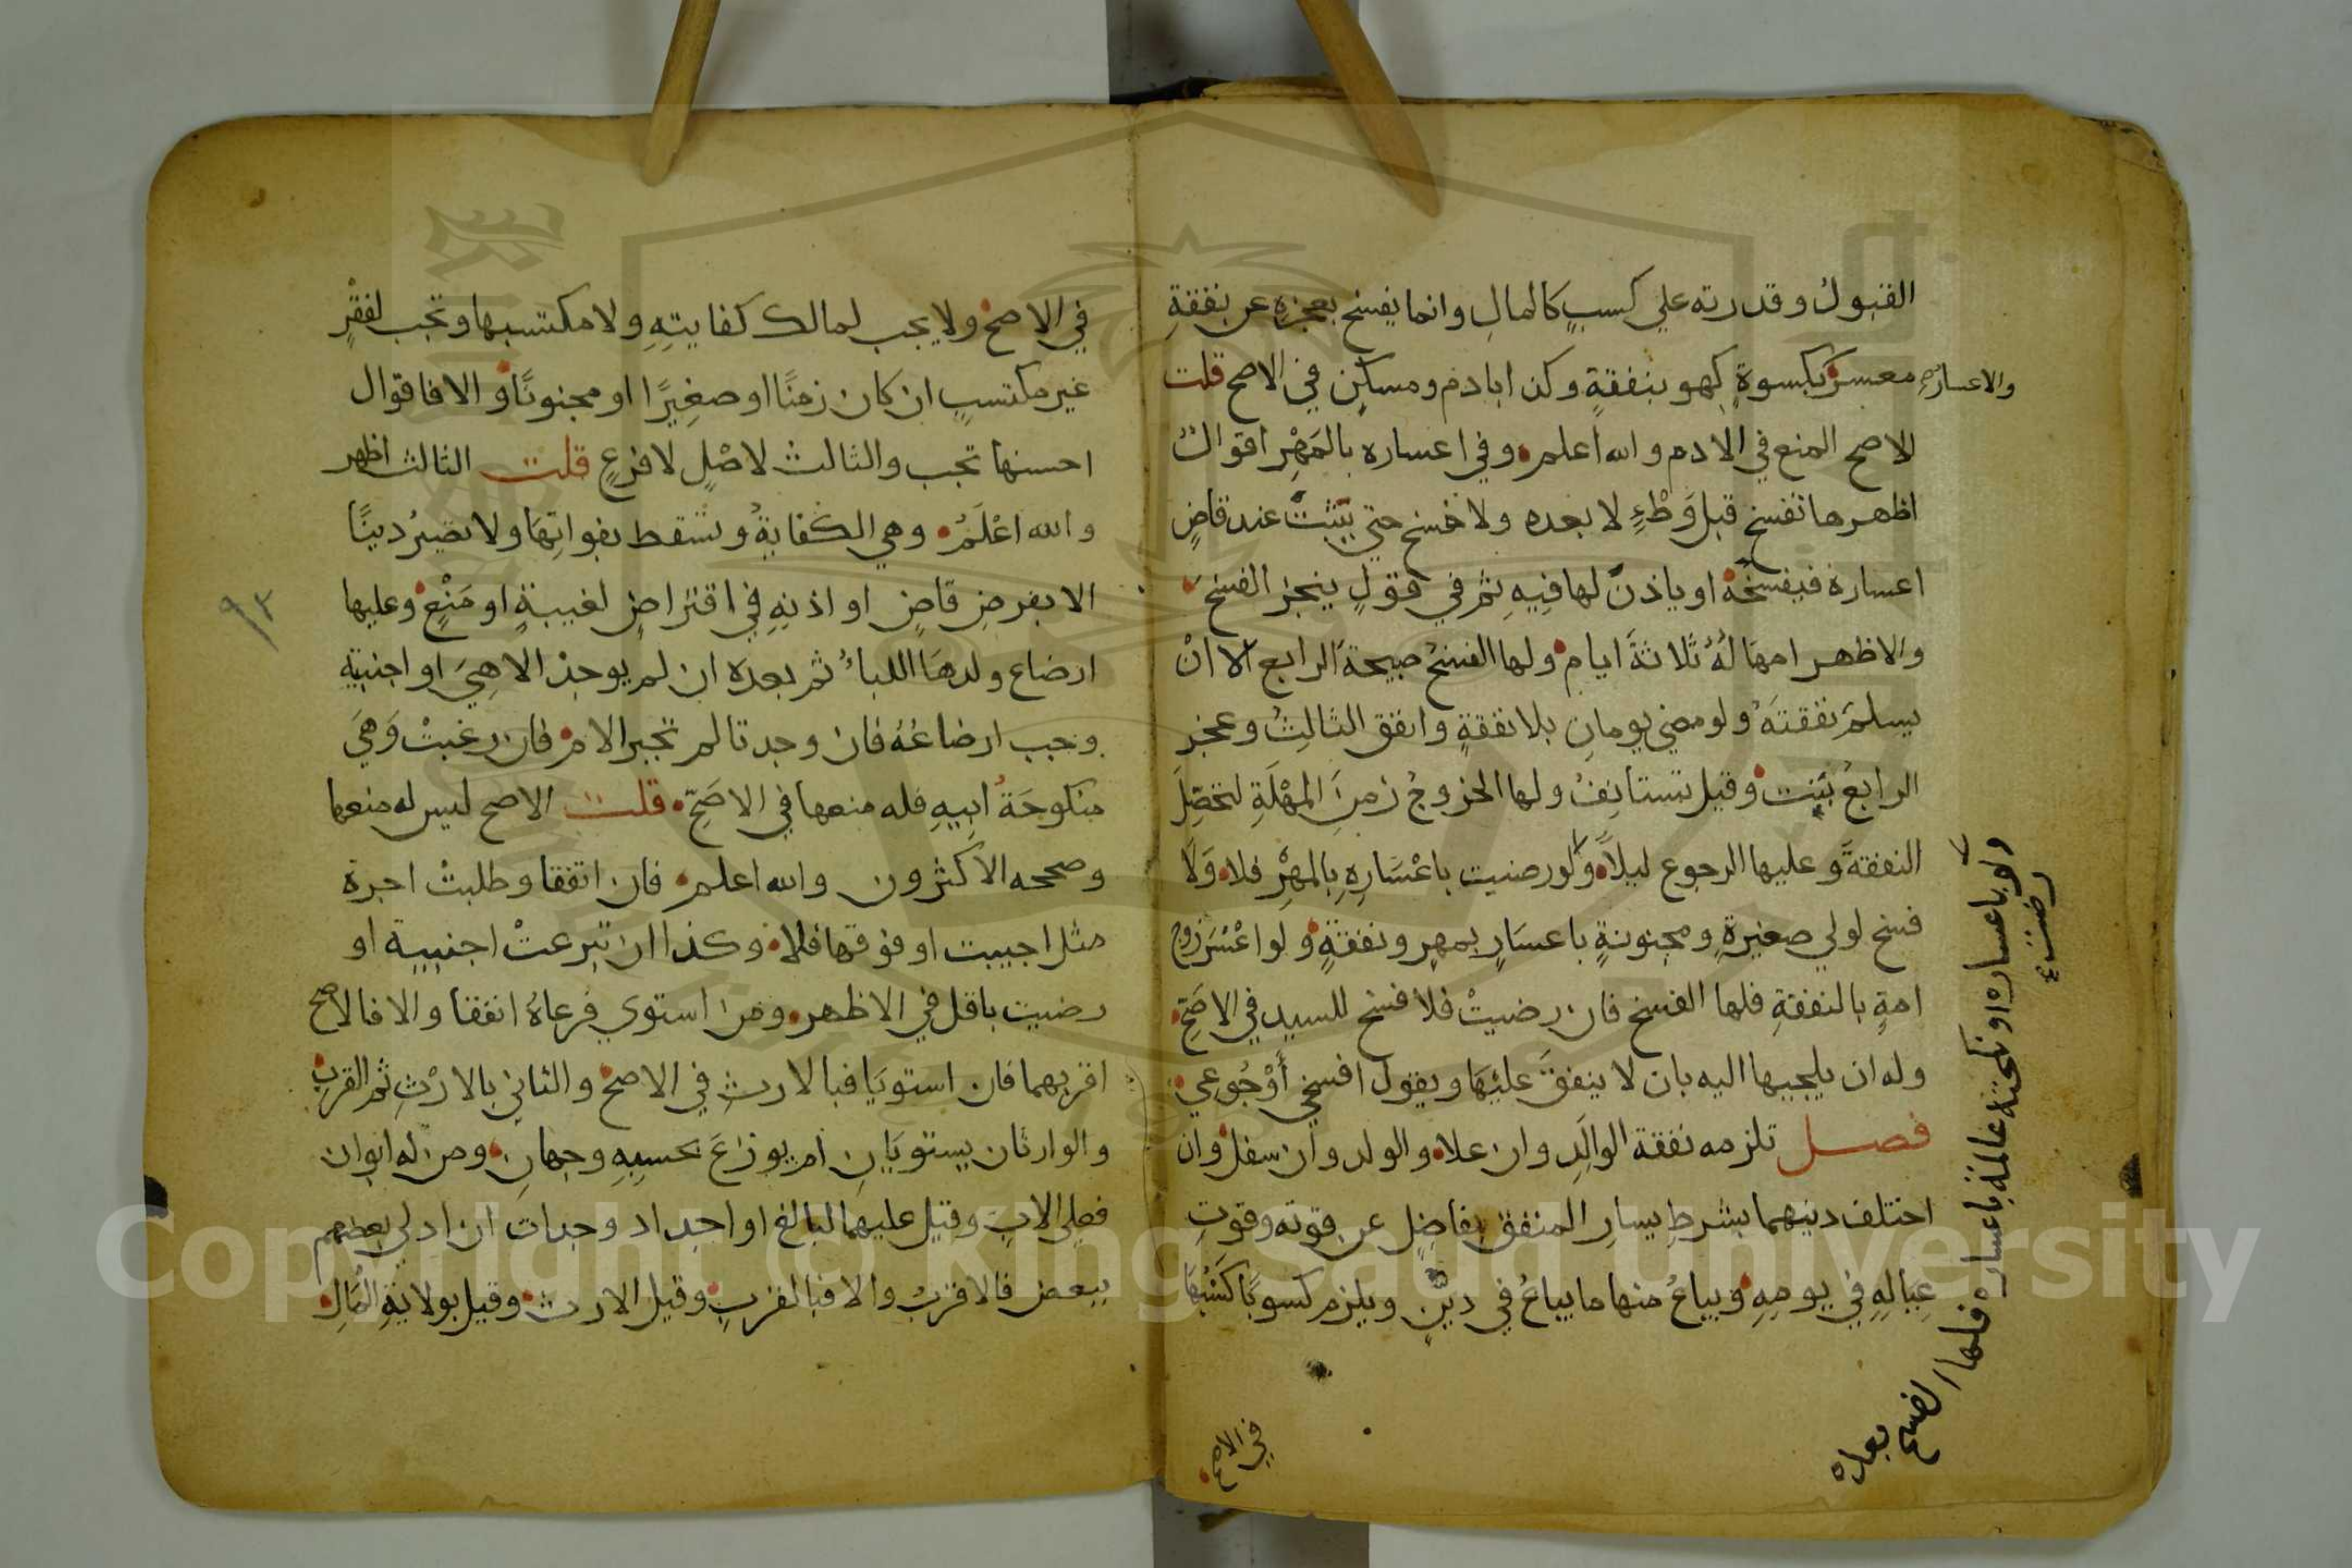 القبول وقدرته علي كسبٍ كالمالِ وانما يفسخ بعجزهِ عن نفقةِ
معسرٍ والاعساره بكسوةٍ كهو بنفقةٍ وكذا بادم ومسكنٍ في الاصح قلت
الاصح المنع في الادم والله اعلم وفي اعساره بالمَهْرِ اقوالٌ
اظهرها تفسخ قبل وَطْءٍ لا بعده ولا فسخ حتي يَثبتَ عند قاضٍ
اعساره فيفسخُهُ او ياذنَ لها فيهِ ثم في قولٍ ينجز الفسخ
والاظهر امهالُهُ ثلاثةَ ايام ولها الفسخُ صبيحةَ الرابع الا انْ
يسلمَ نفقتَهُ ولو مضي يومانِ بلا نفقةٍ وانفق الثالثَ وعجز
الرابعَ بَنت وقيل تستانِفُ ولها الخروجُ زمنَ المهْلَةِ لتحصِّلَ
النفقةَ وعليها الرجوع ليلاً ولو رضيت باعْسَارِهِ بِالمهْرِ فلا وَلا
فسخ لولي صغيرةٍ ومجنونةٍ باعسَارٍ بمهرٍ ونفقةٍ ولو اعْسَرَ زوج
امةٍ بالنفقةِ فلها الفسخ فان رضيتْ فلا فسخ للسيدِ في الاصَحِّ
وله ان يلجيها اليه بان لا ينفقَ عليْهَا ويقول افسخي أوْ جُوعي
فصل تلزمه نفقة الوالَدِ وان علا والولد وان سفل وان
اختلف دينهما بشرطِ يسارِ المنفق بفاضِلٍ عن قوته وقوتِ
عِيَالِهِ في يومِهِ ويباعُ فيها ما يباعُ في ديْنٍ ويلزم كسوبًا كَسْبُهَا
ولو رضيت باعساره او نكحته عالمة باعساره فلها الفسخ بعده
في الاصح
في الاصح ولا يجب لمالك كفايتِهِ ولا مكتسبها وتجب لفقْرٍ
غير مكتسبٍ ان كان زمنًا او صغيرًا او مجنونًا والا فاقوال
احسنها تجب والثالث لاصْلٍ لا فرعٍ قلت الثالث اظهر
والله اعْلَمُ وهي الكفايةُ وتسْقط بفواتِهَا ولا تصيرُ دينًا
الا بفرضِ قاضٍ او اذنِهِ في اقتراضٍ لغيبةٍ او مَنْعٍ وعليها
ارضاع ولدهَا اللباءَ ثم بعدَه ان لم يوجد الا هِيَ او اجنبية
وجب ارضاعُهُ فان وجدتا لم تجبر الام فان رغبتْ وَهيَ
منكوحَةُ ابِيهِ فله منعها في الاصَحِّ قلت الاصح ليس له منعها
وصححه الاكثرون والله اعلم فان اتفقا وطلبتْ اجرة
مثل اجيبت او فوقها فلا وكذا ان تبرعتْ اجنبية او
رضيت باقل في الاظهر ومن استوي فرعاهُ انفقا والا فالاصح
اقربهما فان استويَا فبالارثِ في الاصح والثاني بالارْثِ ثم القربِ
والوارثان يستويَانِ ام يوزعَ بحسبِهِ وجهانِ ومن له ابوان
فعلي الابِ وقيل عليهما لبالغ او اجداد وجدات ان ادلي بعضهم
ببعض فالاقربُ والا فبالقربِ وقيل الارث وقيل بولايةِ المَالِ
٩٣
Copyright © King Saud University